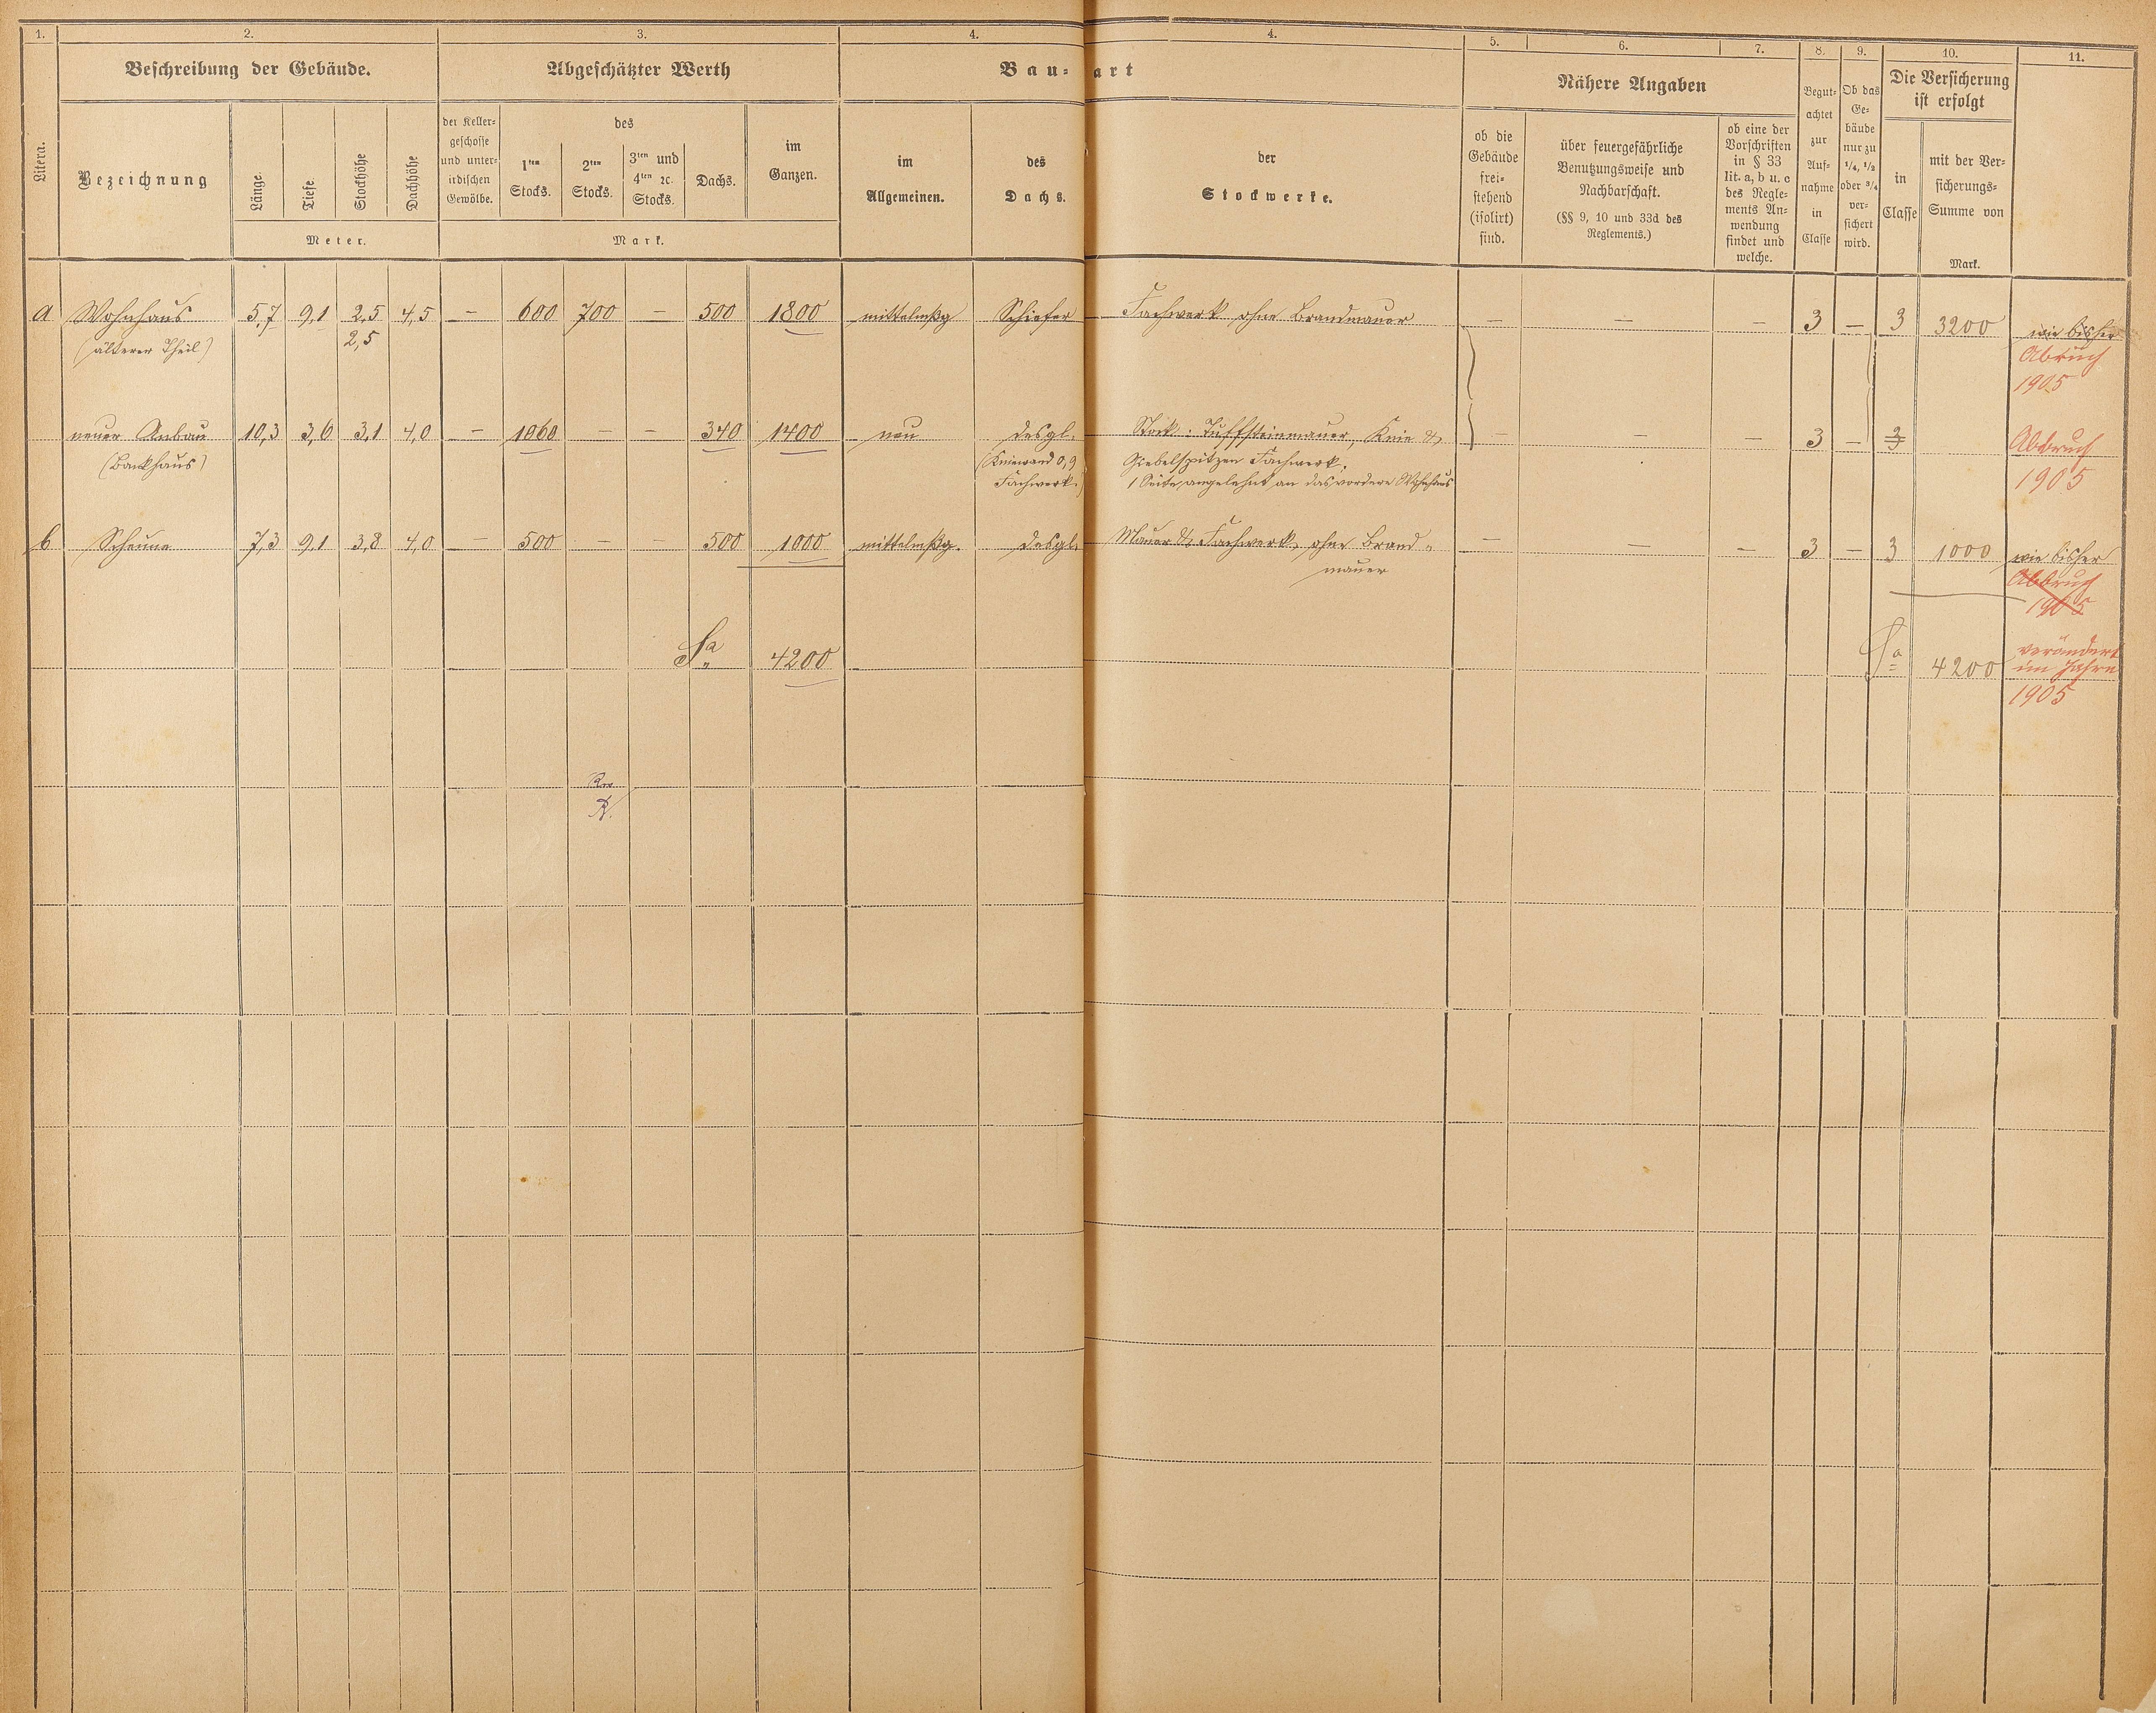 1. 2. 3. 4. 4. 5. 6. 7. 8. 9. 10. 11.
Beschreibung der Gebäude. Abgeschätzter Werth Bau- art Nähere Angaben Die Versicherung
ist erfolgt
Litera.
Bezeichnung
Länge.
Tiefe
Stockhöhe
Dachhöhe
Meter.
der Keller-
geschosse
und unter-
irdischen
Gewölbe.
des
1ten
Stocks.
2ten
Stocks.
3ten und
4ten ec.
Stocks.
Dachs.
im
Ganzen.
Mark.
im
Allgemeinen.
des
Dachs.
der
Stockwerke.
ob die
Gebäude
frei-
stehend
(isolirt)
sind.
über feuergefährliche
Benutzungsweise und
Nachbarschaft.
(§§ 9, 10 und 33d des
Reglements.)
ob eine der
Vorschriften
in § 33
lit. a, b u. c
des Regle-
ments An-
wendung
findet und
welche.
Begut-
achtet
zur
Auf-
nahme
in
Classe
Ob das
Ge-
bäude
nur zu
1/4, 1/2
oder 3/4
ver-
sichert
wird.
in
Classe
mit der Ver-
sicherungs-
Summe von
Mark.
a Wohnhaus 5,7 9,1 2,5 4,5 — 600 700 — 500 1800 mittelmßg Schiefer Fachwerk ohne Brandmauer — — — 3 — 3 3200 wie bisher
(älterer Theil) 2,5
Abruch
1905
neuer Anbau 10,3 3,6 3,1 4,0 — 1060 — — 340 1400 neu desgl. Stock: Tuffsteinmauer, Knie &
(Backhaus) (Kniewand 0,9 Giebelspitzen Fachwerk.
Fachwerk.) 1 Seite angelehnt an das vordere Wohnhaus
— — — 3 — 3 Abbruch
1905
b Scheune 7,3 9,1 3,8 4,0 — 500 — — 500 1000 mittelmßg. desgl. Mauer & Fachwerk, ohne Brand-
mauer
— — — 3 — 3 1000 wie bisher
Abbruch
1905
Sa 4200 Sa 4200
verändert
im Jahre
1905